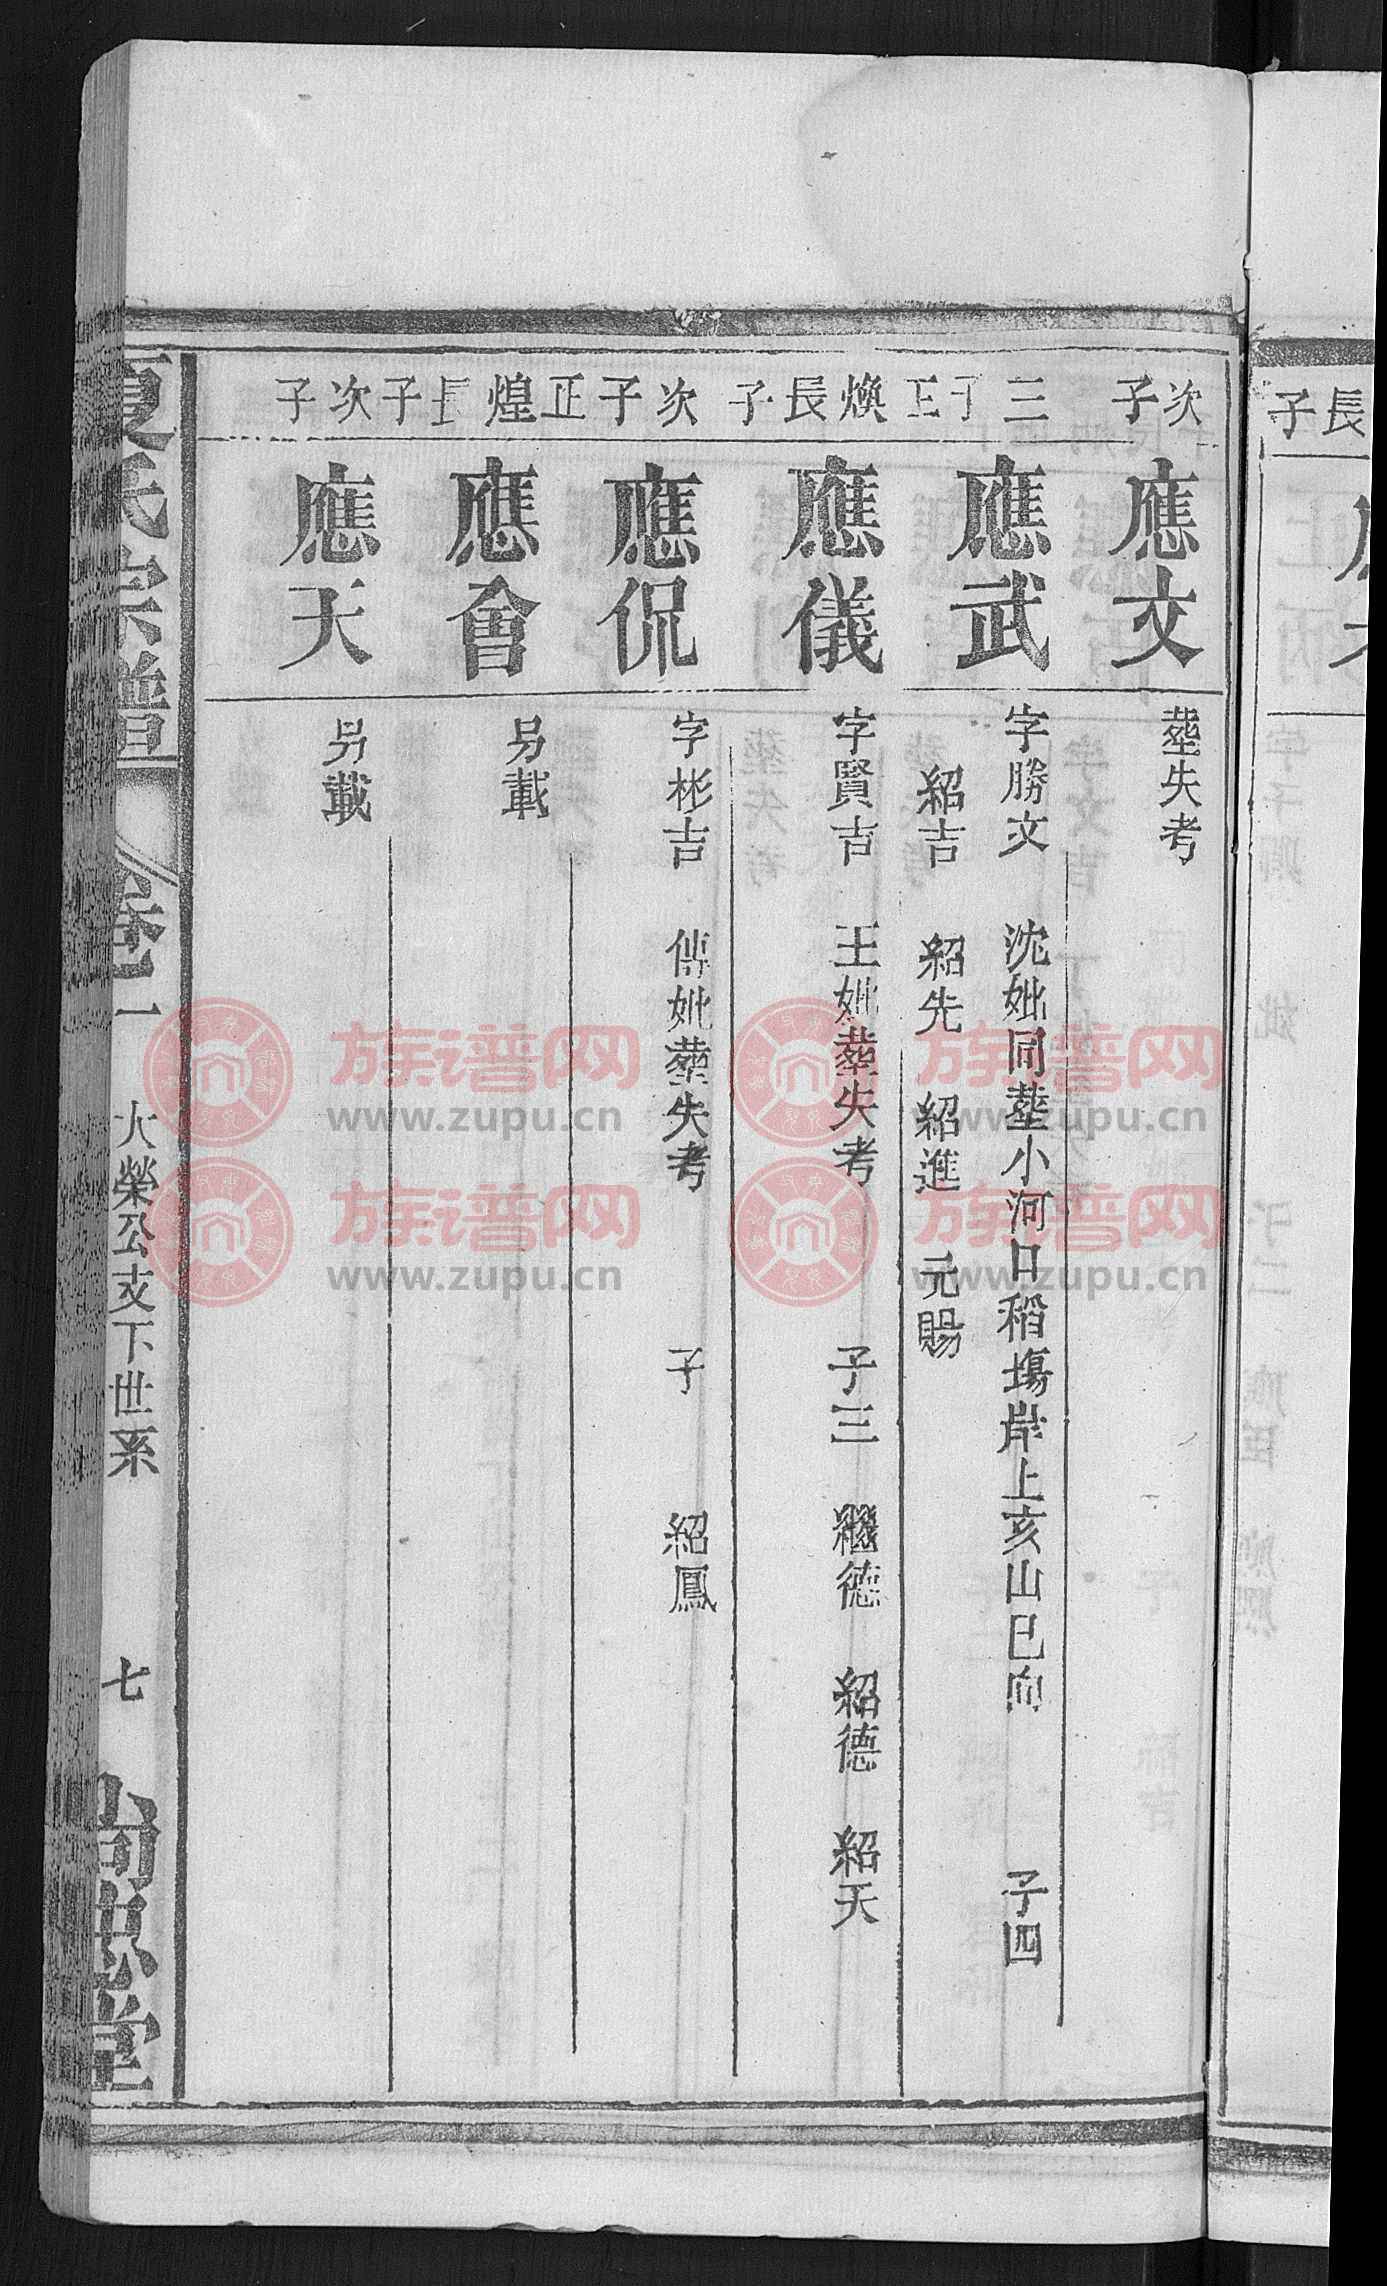 次子
應文
塟失考
三子
應武
字勝文 沈妣同塟小河口稻塲岸上亥山巳向 子四
紹吉 紹先 紹進 元賜
正煥長子
應儀
字賢吉 王妣塟失考 子三 繼德 紹德 紹天
次子
應侃
字彬吉 傅妣塟失考 子 紹鳳
正煌長子
應會
另載
次子
應天
另載
夏氏宗譜
卷一
大榮公支下世系
七
尚忠堂
長子
族谱网
www.zupu.cn
族谱网
www.zupu.cn
族谱网
www.zupu.cn
族谱网
www.zupu.cn